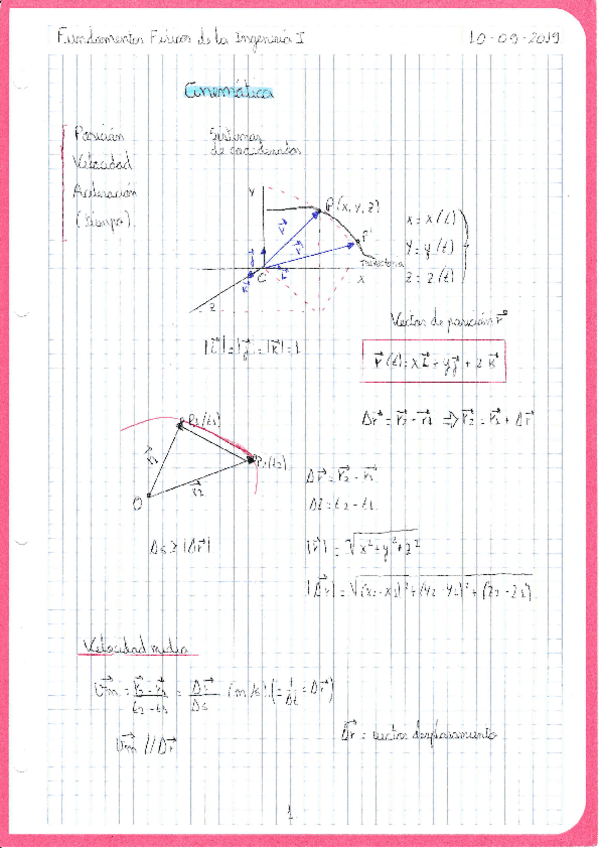 Fundamentos Físicos de la Ingeniería I 10-09-2019
Cinemática
Posición
Velocidad
Aceleración
(tiempo)
Sistemas
de coordenadas
Y
P(x, y, z)
P'
trayectoria
X
Z
x = x(t)
y = y(t)
z = z(t)
|i⃗| = |j⃗| = |k⃗| = 1
Vector de posición r⃗
r⃗(t) = x i⃗ + y j⃗ + z k⃗
Δr⃗ = r⃗₂ - r⃗₁ ⇒ r⃗₂ = r⃗₁ + Δr⃗
P₁(t₁)
P₂(t₂)
r⃗₁
r⃗₂
O
Δr⃗ = r⃗₂ - r⃗₁
Δt = t₂ - t₁
Δs ≥ |Δr⃗|
|r⃗| = √x² + y² + z²
|Δr⃗| = √(x₂ - x₁)² + (y₂ - y₁)² + (z₂ - z₁)
Velocidad media
Δr⃗ = vector desplazamiento
v⃗m // Δr⃗
1